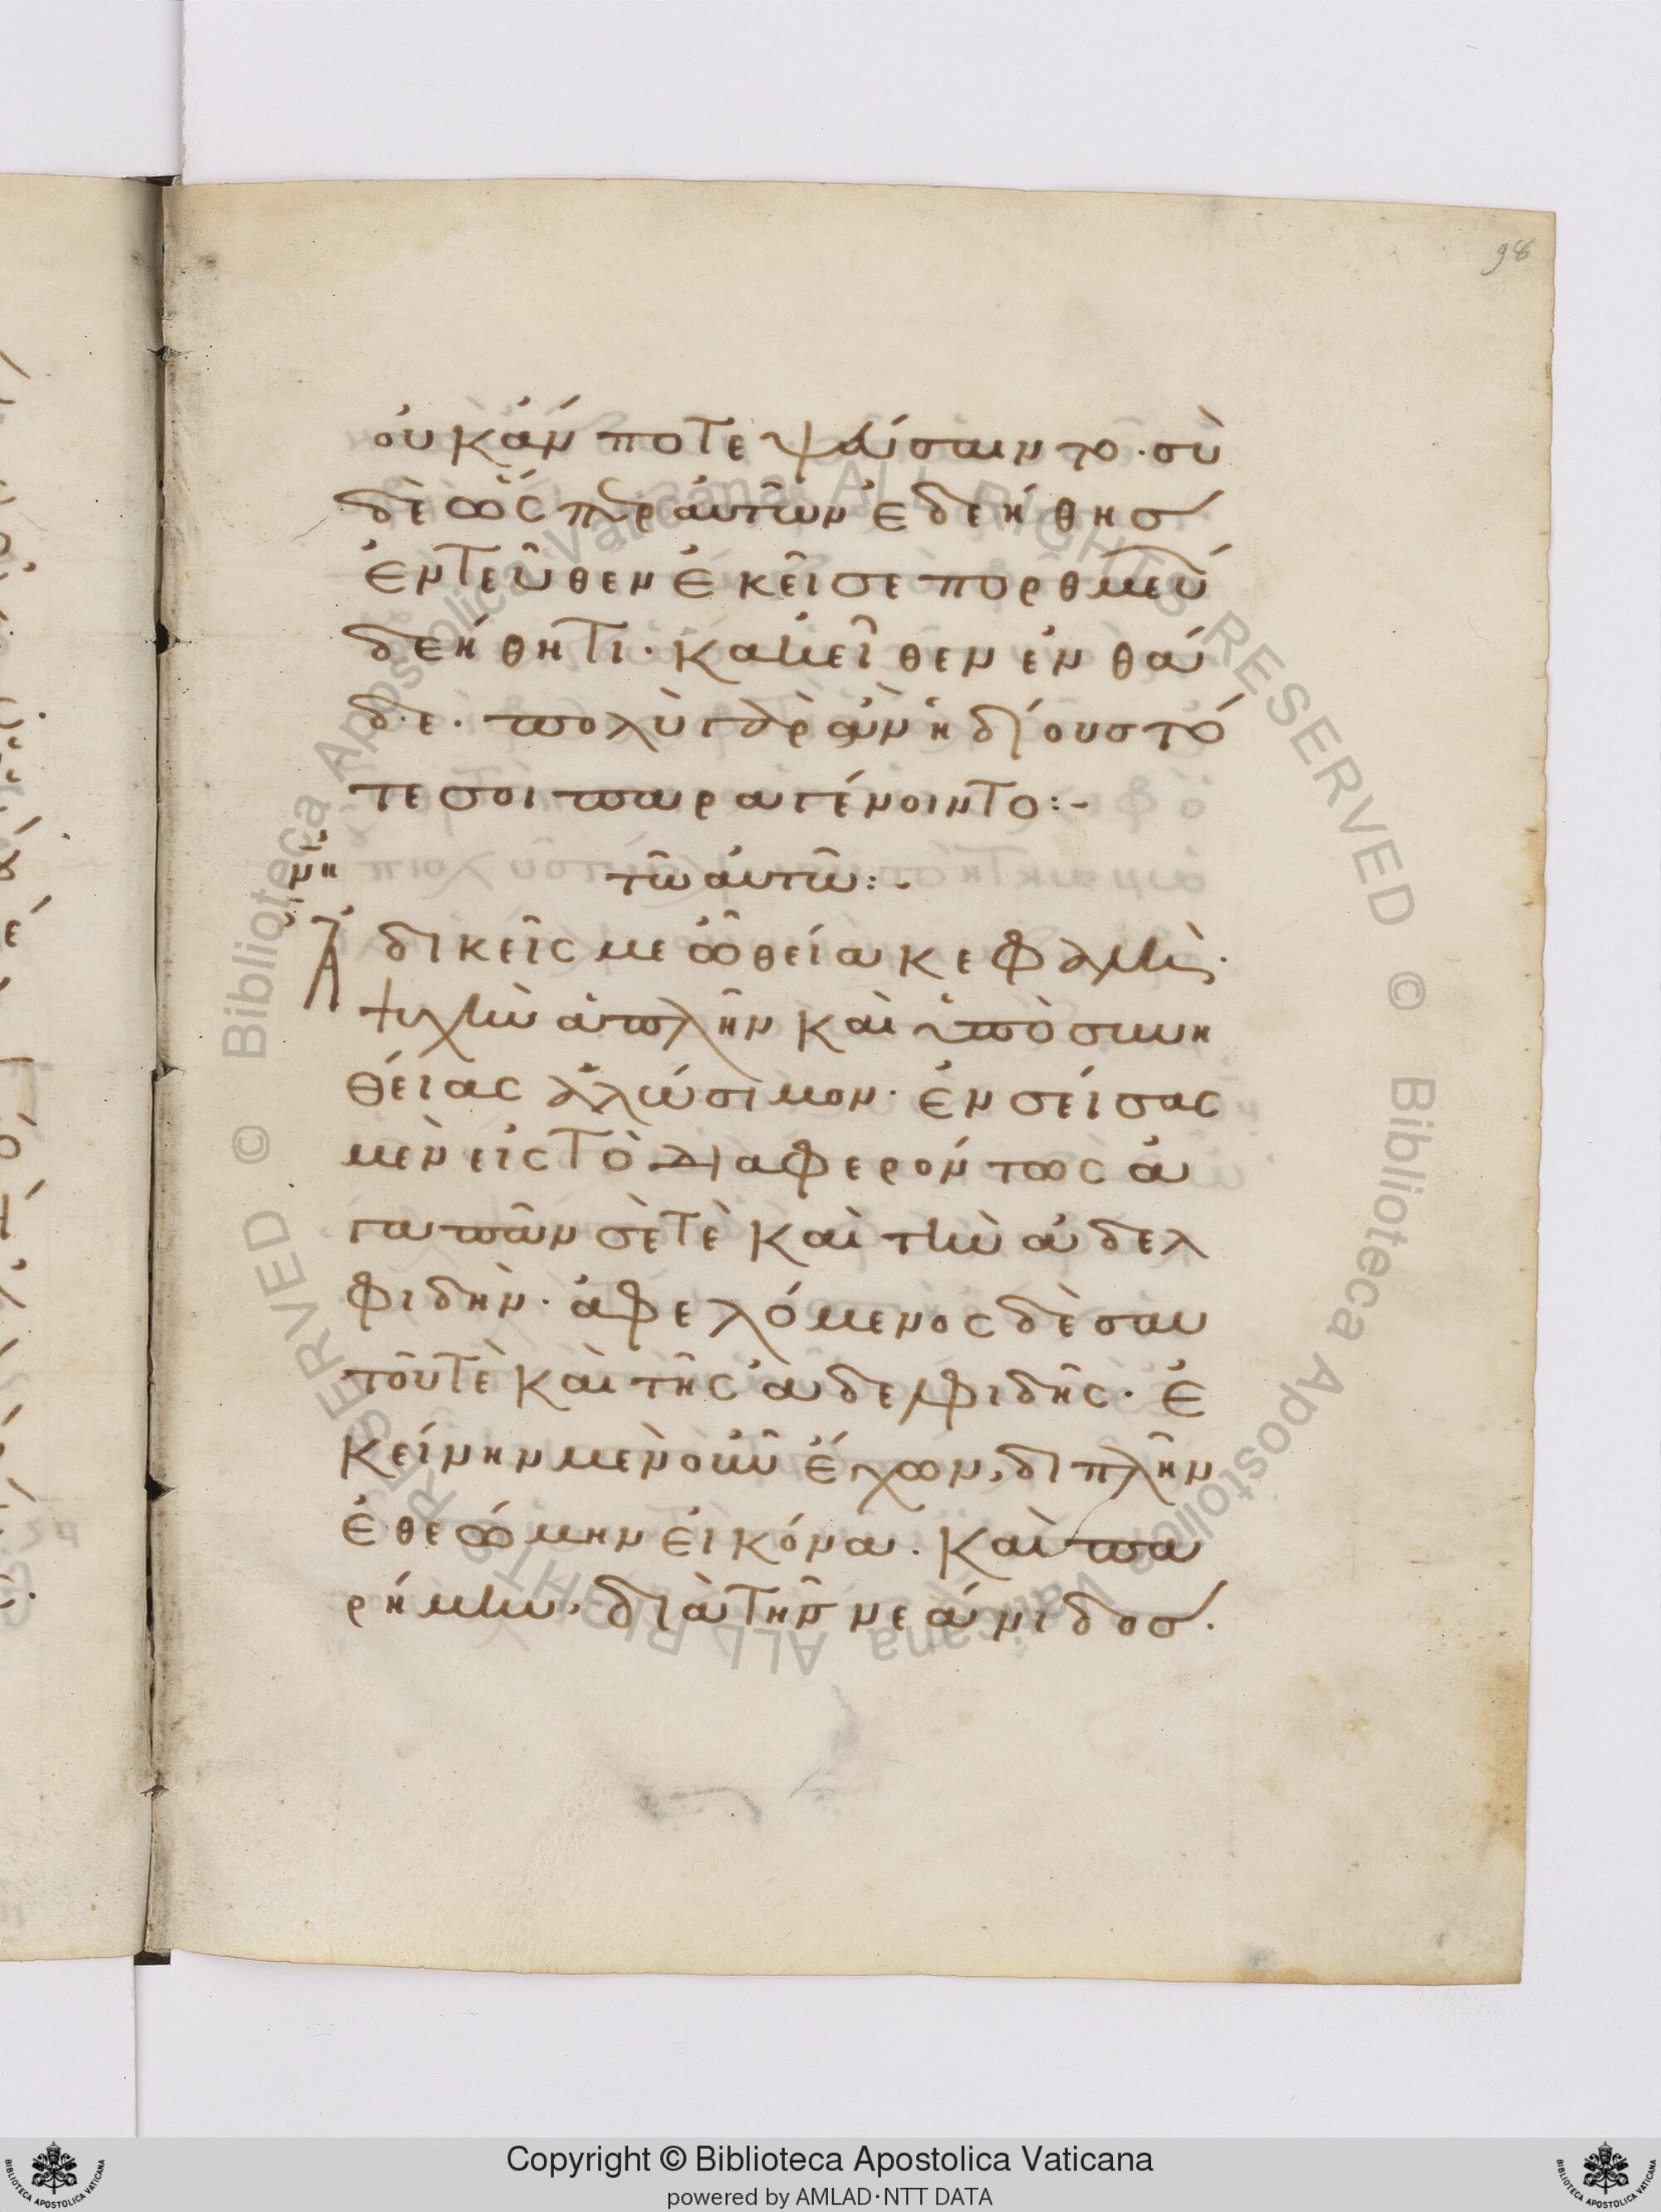 98
οὐκ ἄν ποτε ψαύσαιντο· σὺ
δὲ ὡς παρ αὐτῶν ἐδεήθησ
ἐντεῦθεν ἐκεῖσε πορθμεύ
δεήθητι· κακεῖθεν ἐνθά
δε· πολὺ γὰρ ἂν ἡδίους τό
τε σοι παραγένοιντο:-
μη τῶ αὐτῶ:-
Ἀδικεῖς με ὦ θεία κεφαλὴ·
ψυχὴν ἁπλῆν καὶ ὑπὸ συνη
θείας ἁλώσιμον· ἐνσείσας
μὲν εἰς τὸ διαφερόντως ἀ
γαπᾶν σὲ τὲ καὶ τὴν ἀδελ
φιδὴν· ἀφελόμενος δὲ σαυ
τοῦ τὲ καὶ τῆς ἀδελφιδῆς· ἐ
κείνην μὲν οὖν ἔχων, διπλῆν
ἐθεώμην εἰκόνα· καὶ πα
ρήμην, διὰ τῆσ νεάνιδοσ·
Copyright © Biblioteca Apostolica Vaticana
powered by AMLAD·NTT DATA